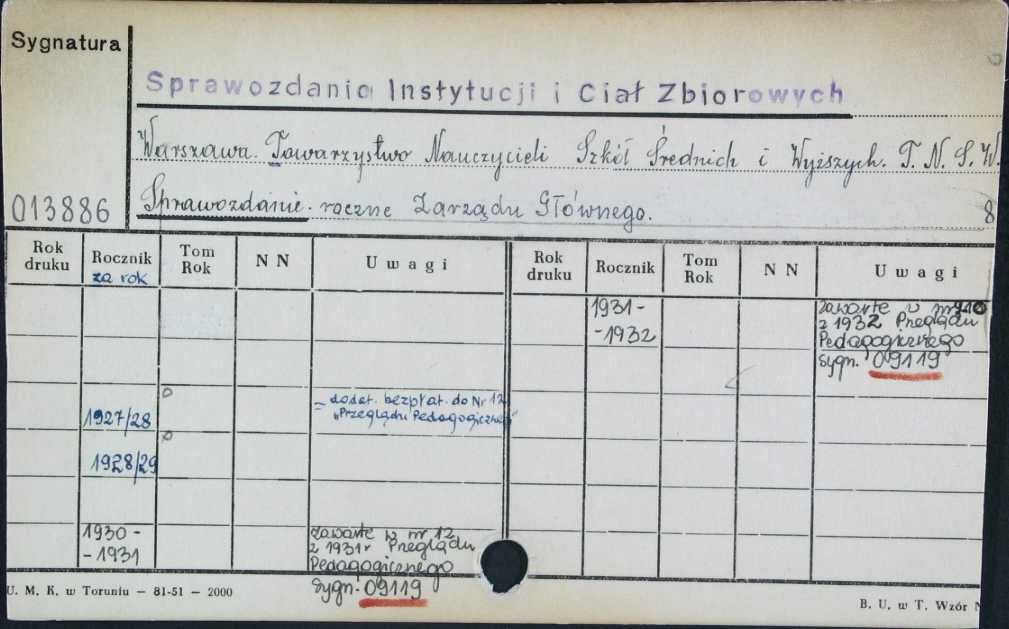 Sygnatura
Sprawozdania Instytucji i Ciał Zbiorowych
Warszawa. Towarzystwo Nauczycieli Szkół Średnich i Wyższych. T. N. S. W.
013886
Sprawozdanie roczne Zarządu Głównego.
8
Rok druku
Rocznik
za rok
Tom Rok
N N
Uwagi
Rok druku
Rocznik
Tom Rok
N N
Uwagi
1931-
-1932
zawarte w nr
z 1932 Przeglądu
Pedagogicznego
sygn. 09119
1927/28
= dodat. bezpłat. do Nr 12
"Przeglądu Pedagogicznego"
1928/29
1930-
-1931
zawarte w nr 12
z 1931r Przeglądu
Pedagogicznego
Sygn. 09119
U. M. K. w Toruniu — 81-51 — 2000
B. U. w T. Wzór